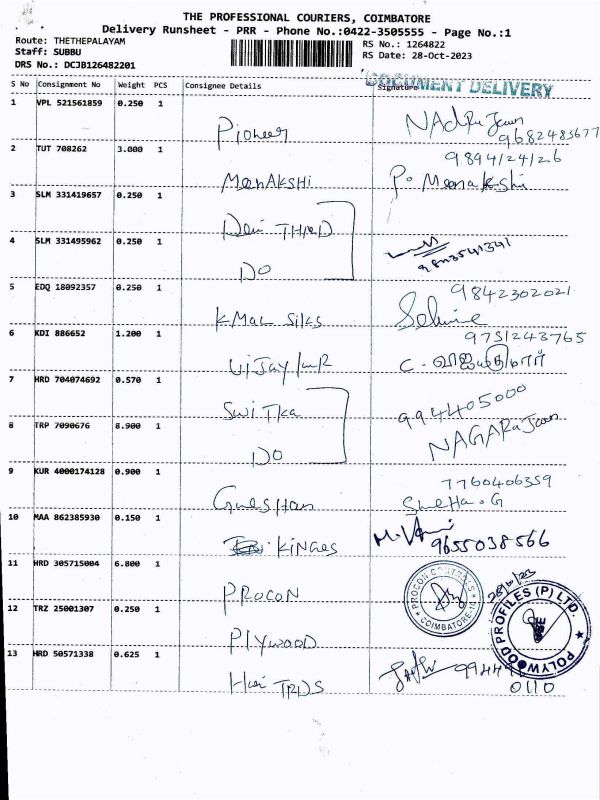 THE PROFESSIONAL COURIERS, COIMBATORE
Delivery Runsheet - PRR - Phone No.:0422-3505555 - Page No.:1
Route: THETHEPALAYAM
Staff: SUBBU
DRS No.: DCJB126482201
RS No.: 1264822
RS Date: 28-Oct-2023
DOCUMENT DELIVERY
S No Consignment No Weight PCS Consignee Details Signature
1 VPL 521561859 0.250 1 Pioneer
9682483677
2 TUT 708262 3.000 1 MeenAkshi 9894124126
P. Meenakshi
3 SLM 331419657 0.250 1
4 SLM 331495962 0.250 1 DO
5 EDQ 18092357 0.250 1 KMac Silks 9842302021
6 KDI 886652 1.200 1 Vijay 9751243765
7 HRD 704074692 0.570 1 994405000
8 TRP 7090676 8.900 1 DO NAGARajan
9 KUR 4000174128 0.900 1 7760406359
SneHa.G
10 MAA 862385930 0.150 1 KINGES 9655038566
11 HRD 305715004 6.800 1 PROCON
PROCON CONTROLS COIMBATORE
12 TRZ 25001307 0.250 1 PlYwOOD
POLYWOOD PROFILES (P) LTD.
13 HRD 50571338 0.625 1 Hari TRDS
0110